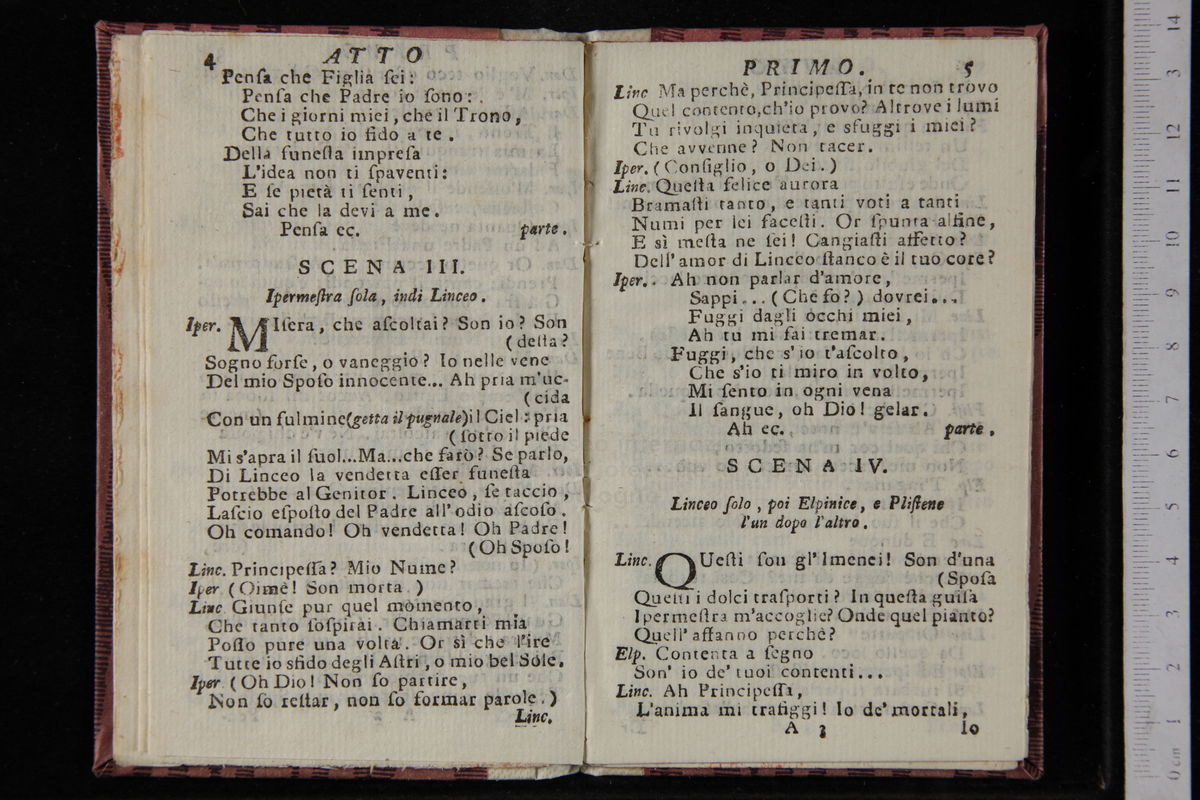 4 ATTO
Penſa che Figlia ſei:
Penſa che Padre io ſono:
Che i giorni miei, che il Trono,
Che tutto io fido a te.
Della funeſta impreſa
L'idea non ti ſpaventi:
E ſe pietà ti ſenti,
Sai che la devi a me.
Penſa ec. parte.
SCENA III.
Ipermeſtra ſola, indi Linceo.
Iper. MIſera, che aſcoltai? Son io? Son
(deſta?
Sogno forſe, o vaneggio? Io nelle vene
Del mio Spoſo innocente... Ah pria m'uc-
(cida
Con un fulmine(getta il pugnale)il Ciel: pria
(ſotto il piede
Mi s'apra il ſuol...Ma...che farò? Se parlo,
Di Linceo la vendetta eſſer funeſta
Potrebbe al Genitor. Linceo, ſe taccio,
Laſcio eſpoſto del Padre all'odio aſcoſo.
Oh comando! Oh vendetta! Oh Padre!
(Oh Spoſo!
Linc. Principeſſa? Mio Nume?
Iper (Oimè! Son morta.)
Linc Giunſe pur quel momento,
Che tanto ſoſpirai. Chiamarti mia
Poſſo pure una volta. Or sì che l'ire
Tutte io sfido degli Aſtri, o mio bel Sole.
Iper (Oh Dio! Non ſo partire,
Non ſo reſtar, non ſo formar parole.)
Linc.
PRIMO. 5
Linc Ma perchè, Principeſſa, in te non trovo
Quel contento, ch'io provo? Altrove i lumi
Tu rivolgi inquieta, e sfuggi i miei?
Che avvenne? Non tacer.
Iper. (Conſiglio, o Dei.)
Linc. Queſta felice aurora
Bramaſti tanto, e tanti voti a tanti
Numi per lei faceſti. Or ſpunta alfine,
E sì meſta ne ſei! Cangiaſti affetto?
Dell'amor di Linceo ſtanco è il tuo core?
Iper. Ah non parlar d'amore,
Sappi... (Che fo?) dovrei...
Fuggi dagli occhi miei,
Ah tu mi fai tremar.
Fuggi, che s'io t'aſcolto,
Che s'io ti miro in volto,
Mi ſento in ogni vena
Il ſangue, oh Dio! gelar.
Ah ec. parte.
SCENA IV.
Linceo ſolo, poi Elpinice, e Pliſtene
l'un dopo l'altro.
Linc. QUeſti ſon gl'Imenei! Son d'una
(Spoſa
Queſti i dolci traſporti? In queſta guiſa
Ipermeſtra m'accoglie? Onde quel pianto?
Quell'affanno perchè?
Elp. Contenta a ſegno
Son' io de' tuoi contenti...
Linc. Ah Principeſſa,
L'anima mi trafiggi! Io de' mortali,
A 3 Io